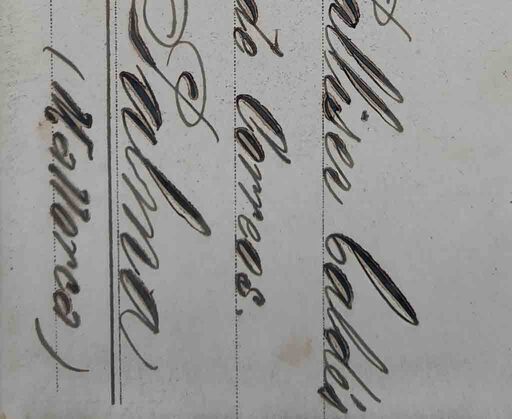 Caldés
de Correos.
Palma
(Mallorca)